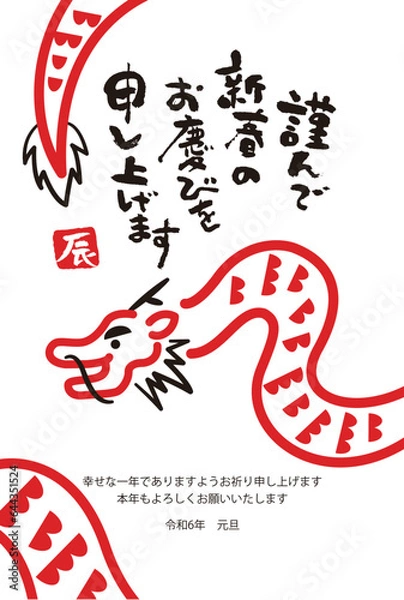 謹んで
新春の
お慶びを
申し上げます
辰
幸せな一年でありますようお祈り申し上げます
本年もよろしくお願いいたします
令和6年　元旦
Adobe Stock | #644351524
Adobe Stock